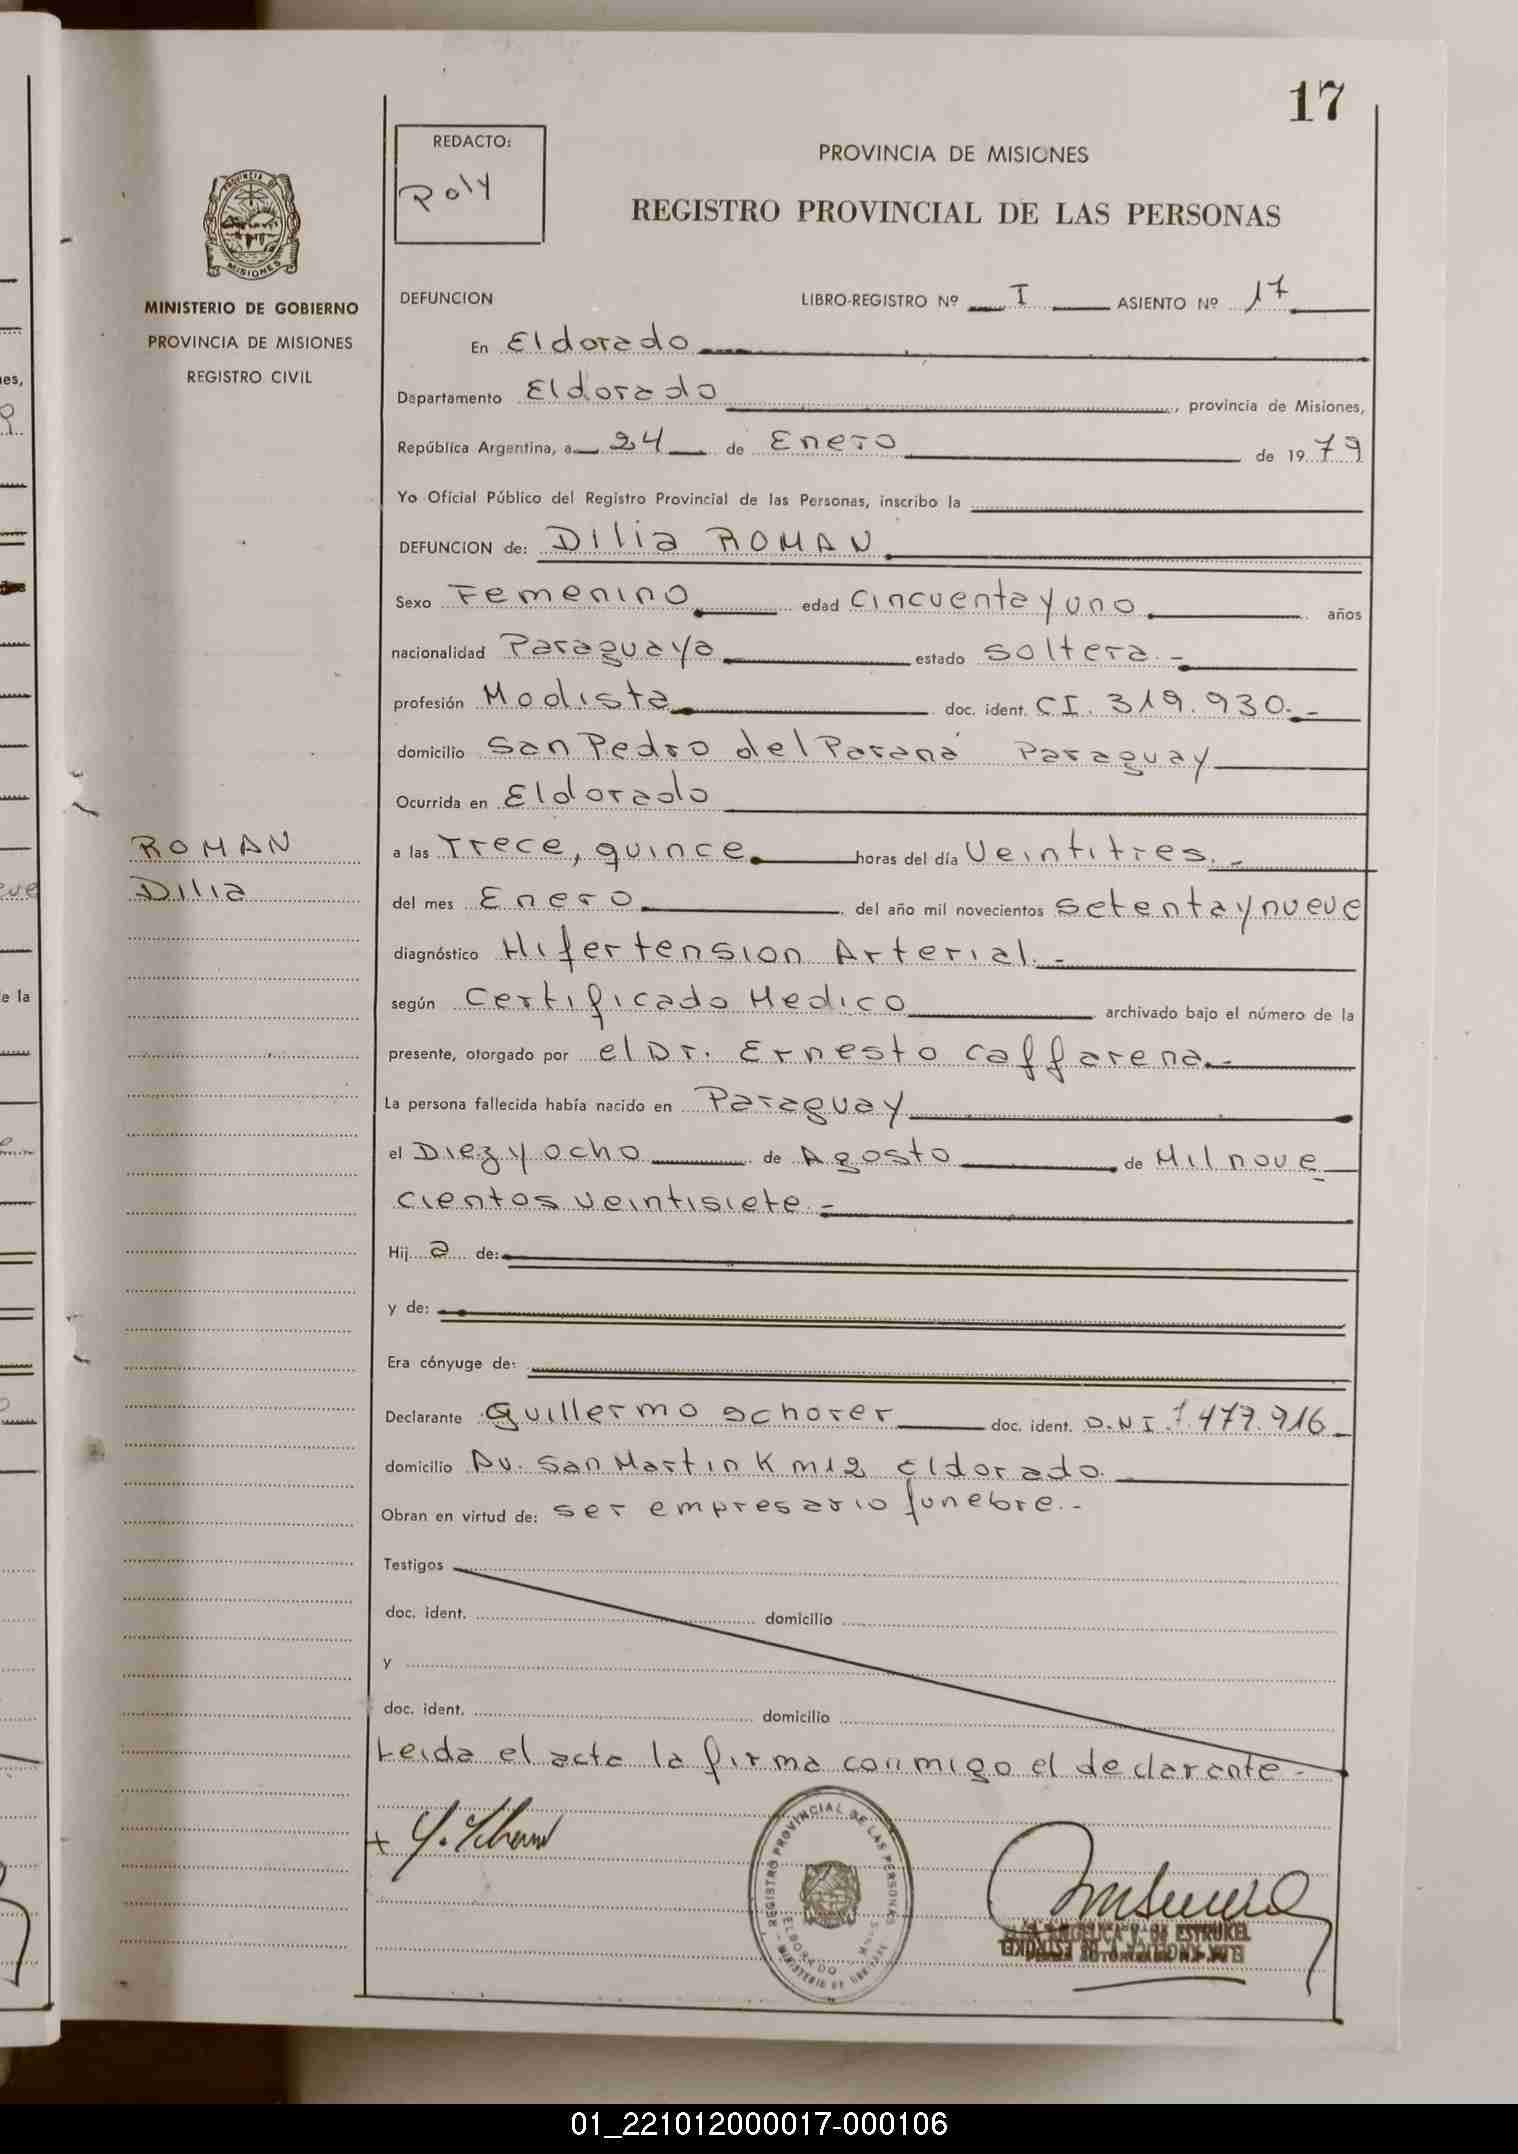 17
REDACTO:
Poly
PROVINCIA DE MISIONES
REGISTRO PROVINCIAL DE LAS PERSONAS
PROVINCIA DE
MISIONES
MINISTERIO DE GOBIERNO
PROVINCIA DE MISIONES
REGISTRO CIVIL
DEFUNCION LIBRO-REGISTRO Nº I ASIENTO Nº 17
En Eldorado
Departamento Eldorado, provincia de Misiones,
República Argentina, a 24 de Enero de 1979
Yo Oficial Público del Registro Provincial de las Personas, inscribo la
DEFUNCION de: Dilia ROMAN
Sexo Femenino edad cincuenta y uno años
nacionalidad Paraguaya estado soltera.-
profesión Modista doc. ident. CI. 319.930.-
domicilio San Pedro del Paraná Paraguay
Ocurrida en Eldorado
ROMAN
Dilia
a las Trece, quince horas del día Veintitres.-
del mes Enero del año mil novecientos setenta y nueve
diagnóstico Hifertension Arterial.-
según Certificado Medico archivado bajo el número de la
presente, otorgado por el Dr. Ernesto Caffarena.-
La persona fallecida había nacido en Paraguay
el Diez y ocho de Agosto de Mil nove
cientos veintisiete.-
Hija de:
y de:
Era cónyuge de:
Declarante Guillermo Schorer doc. ident. D.N.I 7.477.916
domicilio Av. San Martin Km 12 Eldorado.
Obran en virtud de: ser empresario funebre.-
Testigos
doc. ident. domicilio
y
doc. ident. domicilio
Leida el acta la firma conmigo el declarante.-
REGISTRO PROVINCIAL DE LAS PERSONAS
ELDORADO
ANGELICA V. de ESTRUKEL
01_221012000017-000106